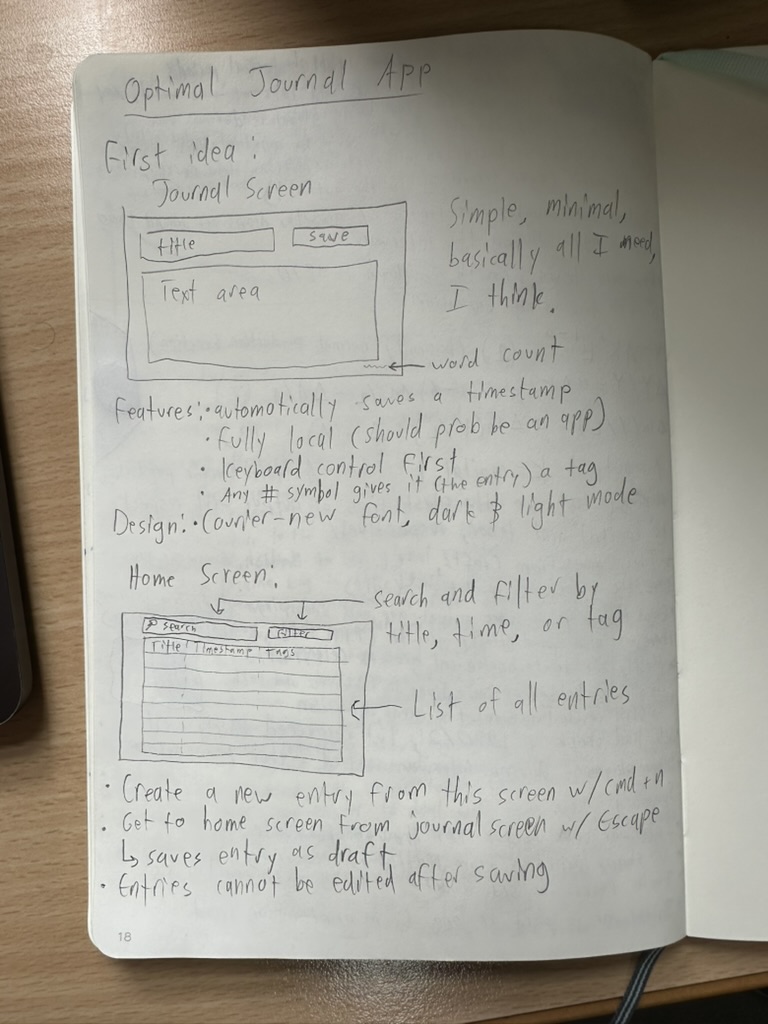 Optimal Journal App
First idea:
Journal Screen
title
save
Text area
word count
Simple, minimal,
basically all I need,
I think.
Features: • automatically saves a timestamp
• fully local (should prob be an app)
• Keyboard control first
• Any # symbol gives it (the entry) a tag
Design: • Courier-new font, dark & light mode
Home Screen:
search
filter
Title Timestamp Tags
search and filter by
title, time, or tag
List of all entries
• Create a new entry from this screen w/ cmd+n
• Get to home screen from journal screen w/ Escape
↳ saves entry as draft
• Entries cannot be edited after saving
18